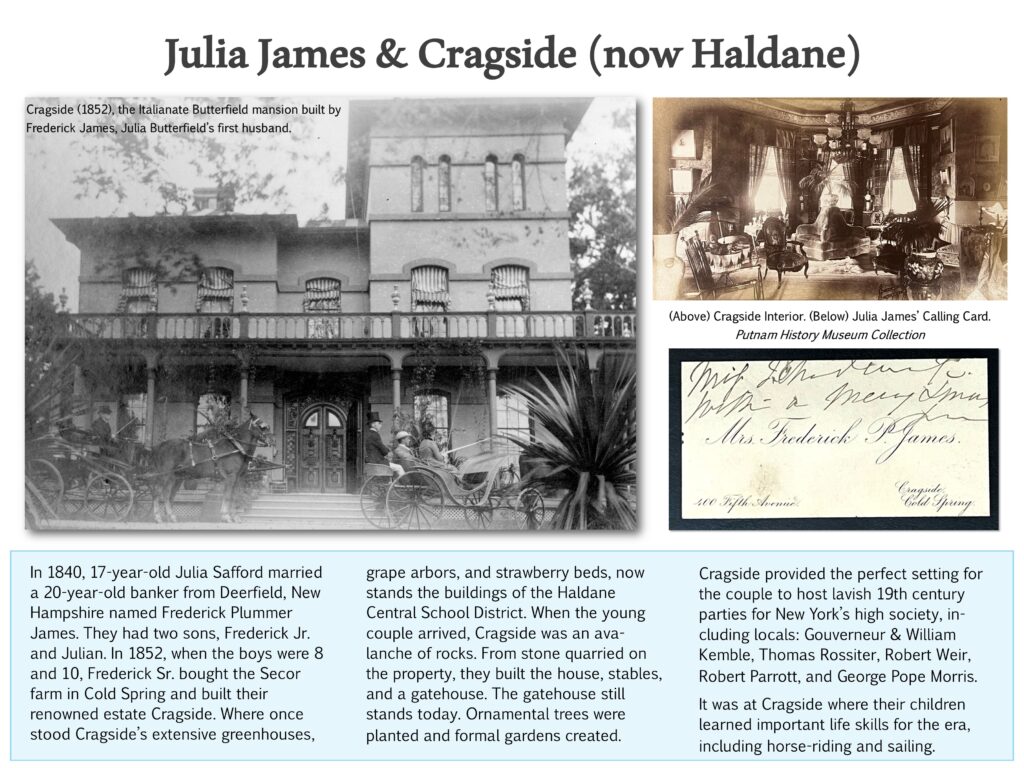 Julia James & Cragside (now Haldane)
Cragside (1852), the Italianate Butterfield mansion built by
Frederick James, Julia Butterfield's first husband.
(Above) Cragside Interior. (Below) Julia James' Calling Card.
Putnam History Museum Collection
with a Merry Xmas
Mrs. Frederick P. James.
400 Fifth Avenue.
Cragside,
Cold Spring.
In 1840, 17-year-old Julia Safford married
a 20-year-old banker from Deerfield, New
Hampshire named Frederick Plummer
James. They had two sons, Frederick Jr.
and Julian. In 1852, when the boys were 8
and 10, Frederick Sr. bought the Secor
farm in Cold Spring and built their
renowned estate Cragside. Where once
stood Cragside's extensive greenhouses,
grape arbors, and strawberry beds, now
stands the buildings of the Haldane
Central School District. When the young
couple arrived, Cragside was an ava-
lanche of rocks. From stone quarried on
the property, they built the house, stables,
and a gatehouse. The gatehouse still
stands today. Ornamental trees were
planted and formal gardens created.
Cragside provided the perfect setting for
the couple to host lavish 19th century
parties for New York's high society, in-
cluding locals: Gouverneur & William
Kemble, Thomas Rossiter, Robert Weir,
Robert Parrott, and George Pope Morris.
It was at Cragside where their children
learned important life skills for the era,
including horse-riding and sailing.